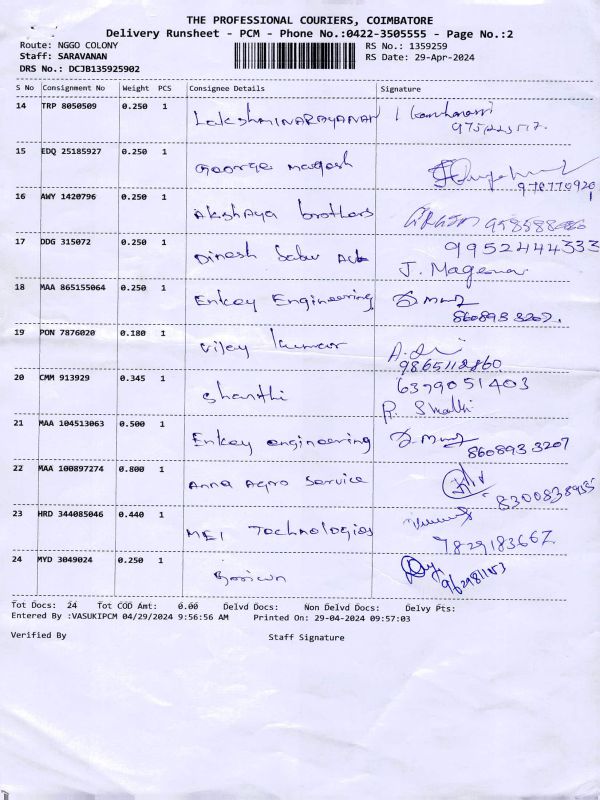 THE PROFESSIONAL COURIERS, COIMBATORE
Delivery Runsheet - PCM - Phone No.:0422-3505555 - Page No.:2
Route: NGGO COLONY RS No.: 1359259
Staff: SARAVANAN RS Date: 29-Apr-2024
DRS No.: DCJB135925902
S No Consignment No Weight PCS Consignee Details Signature
14 TRP 8050509 0.250 1 LakshmiNARAYANAN
15 EDQ 25185927 0.250 1 George magesh
16 AWY 1420796 0.250 1 Akshaya brothers
17 DDG 315072 0.250 1 Dinesh babu 9952444333
J.
18 MAA 865155064 0.250 1 Enkey Engineering
860893 3207.
19 PON 7876020 0.180 1 Vijay kumar
20 CMM 913929 0.345 1 Shanthi 6379051403
R. Shanthi
21 MAA 104513063 0.500 1 Enkey engineering
860893 3207
22 MAA 100897274 0.800 1 Anna Agro Service
8300838935
23 HRD 344085046 0.440 1 MEI Technologies
7829183667
24 MYD 3049024 0.250 1
Tot Docs: 24 Tot COD Amt: 0.00 Delvd Docs: Non Delvd Docs: Delvy Pts:
Entered By :VASUKIPCM 04/29/2024 9:56:56 AM Printed On: 29-04-2024 09:57:03
Verified By Staff Signature